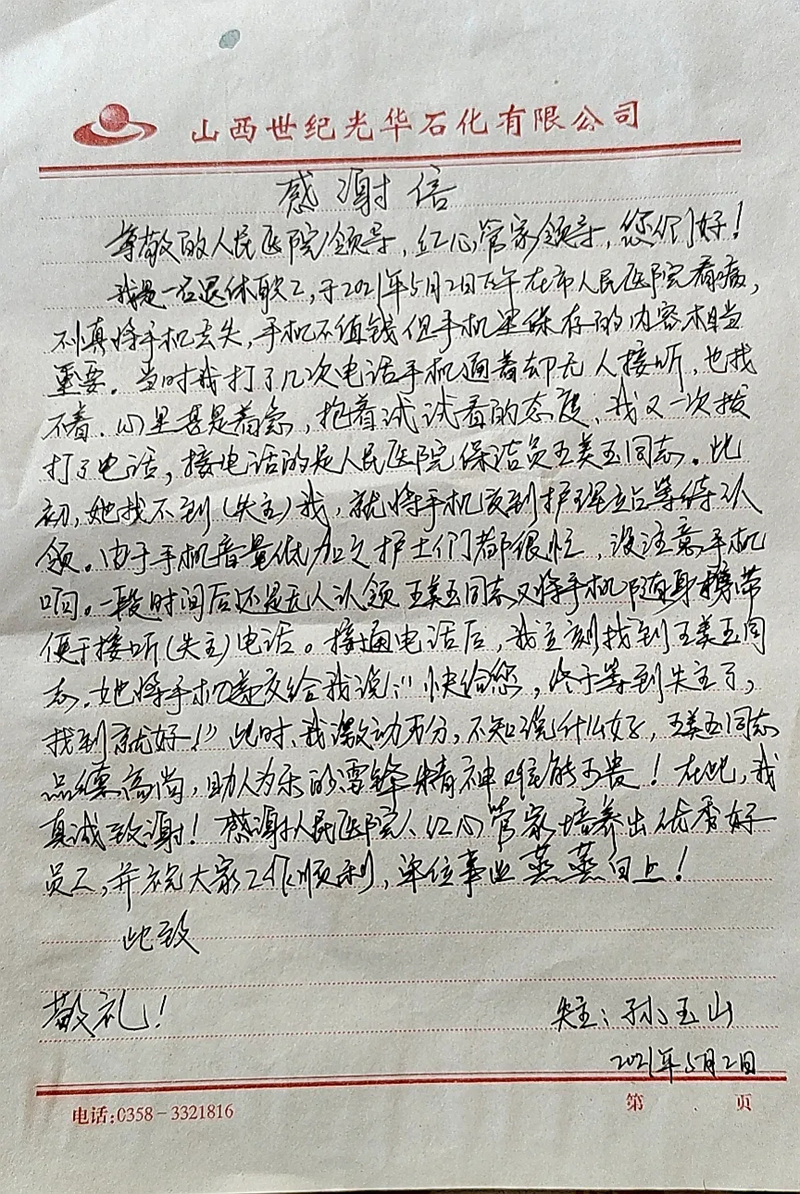 山西世纪光华石化有限公司
感谢信
尊敬的人民医院领导,红心管家领导,您们好!
我是一名退休职工,于2021年5月2日下午在市人民医院看病,
不慎将手机丢失,手机不值钱但手机里保存的内容相当
重要。当时我打了几次电话手机通着却无人接听,也找
不着、心里甚是着急,抱着试试看的态度、我又一次拨
打了电话,接电话的是人民医院保洁员王美玉同志。起
初,她找不到(失主)我,就将手机交到护理站台等待认
领。由于手机音量低加之护士们都很忙,没注意手机
响。一段时间后还是无人认领王美玉同志又将手机随身携带
便于接听(失主)电话。接通电话后,我立刻找到王美玉同
志.她将手机交给我说:“快给您,终于等到失主了,
找到就好!”此时、我激动万分,不知说什么好,王美玉同志
品德高尚,助人为乐的雷锋精神难能可贵!在此,我
真诚致谢!感谢人民医院、红心管家培养出优秀好
员工,并祝大家工作顺利,单位事业蒸蒸日上!
此致
敬礼!
失主:孙玉山
2021年5月2日
电话:0358-3321816
第 页